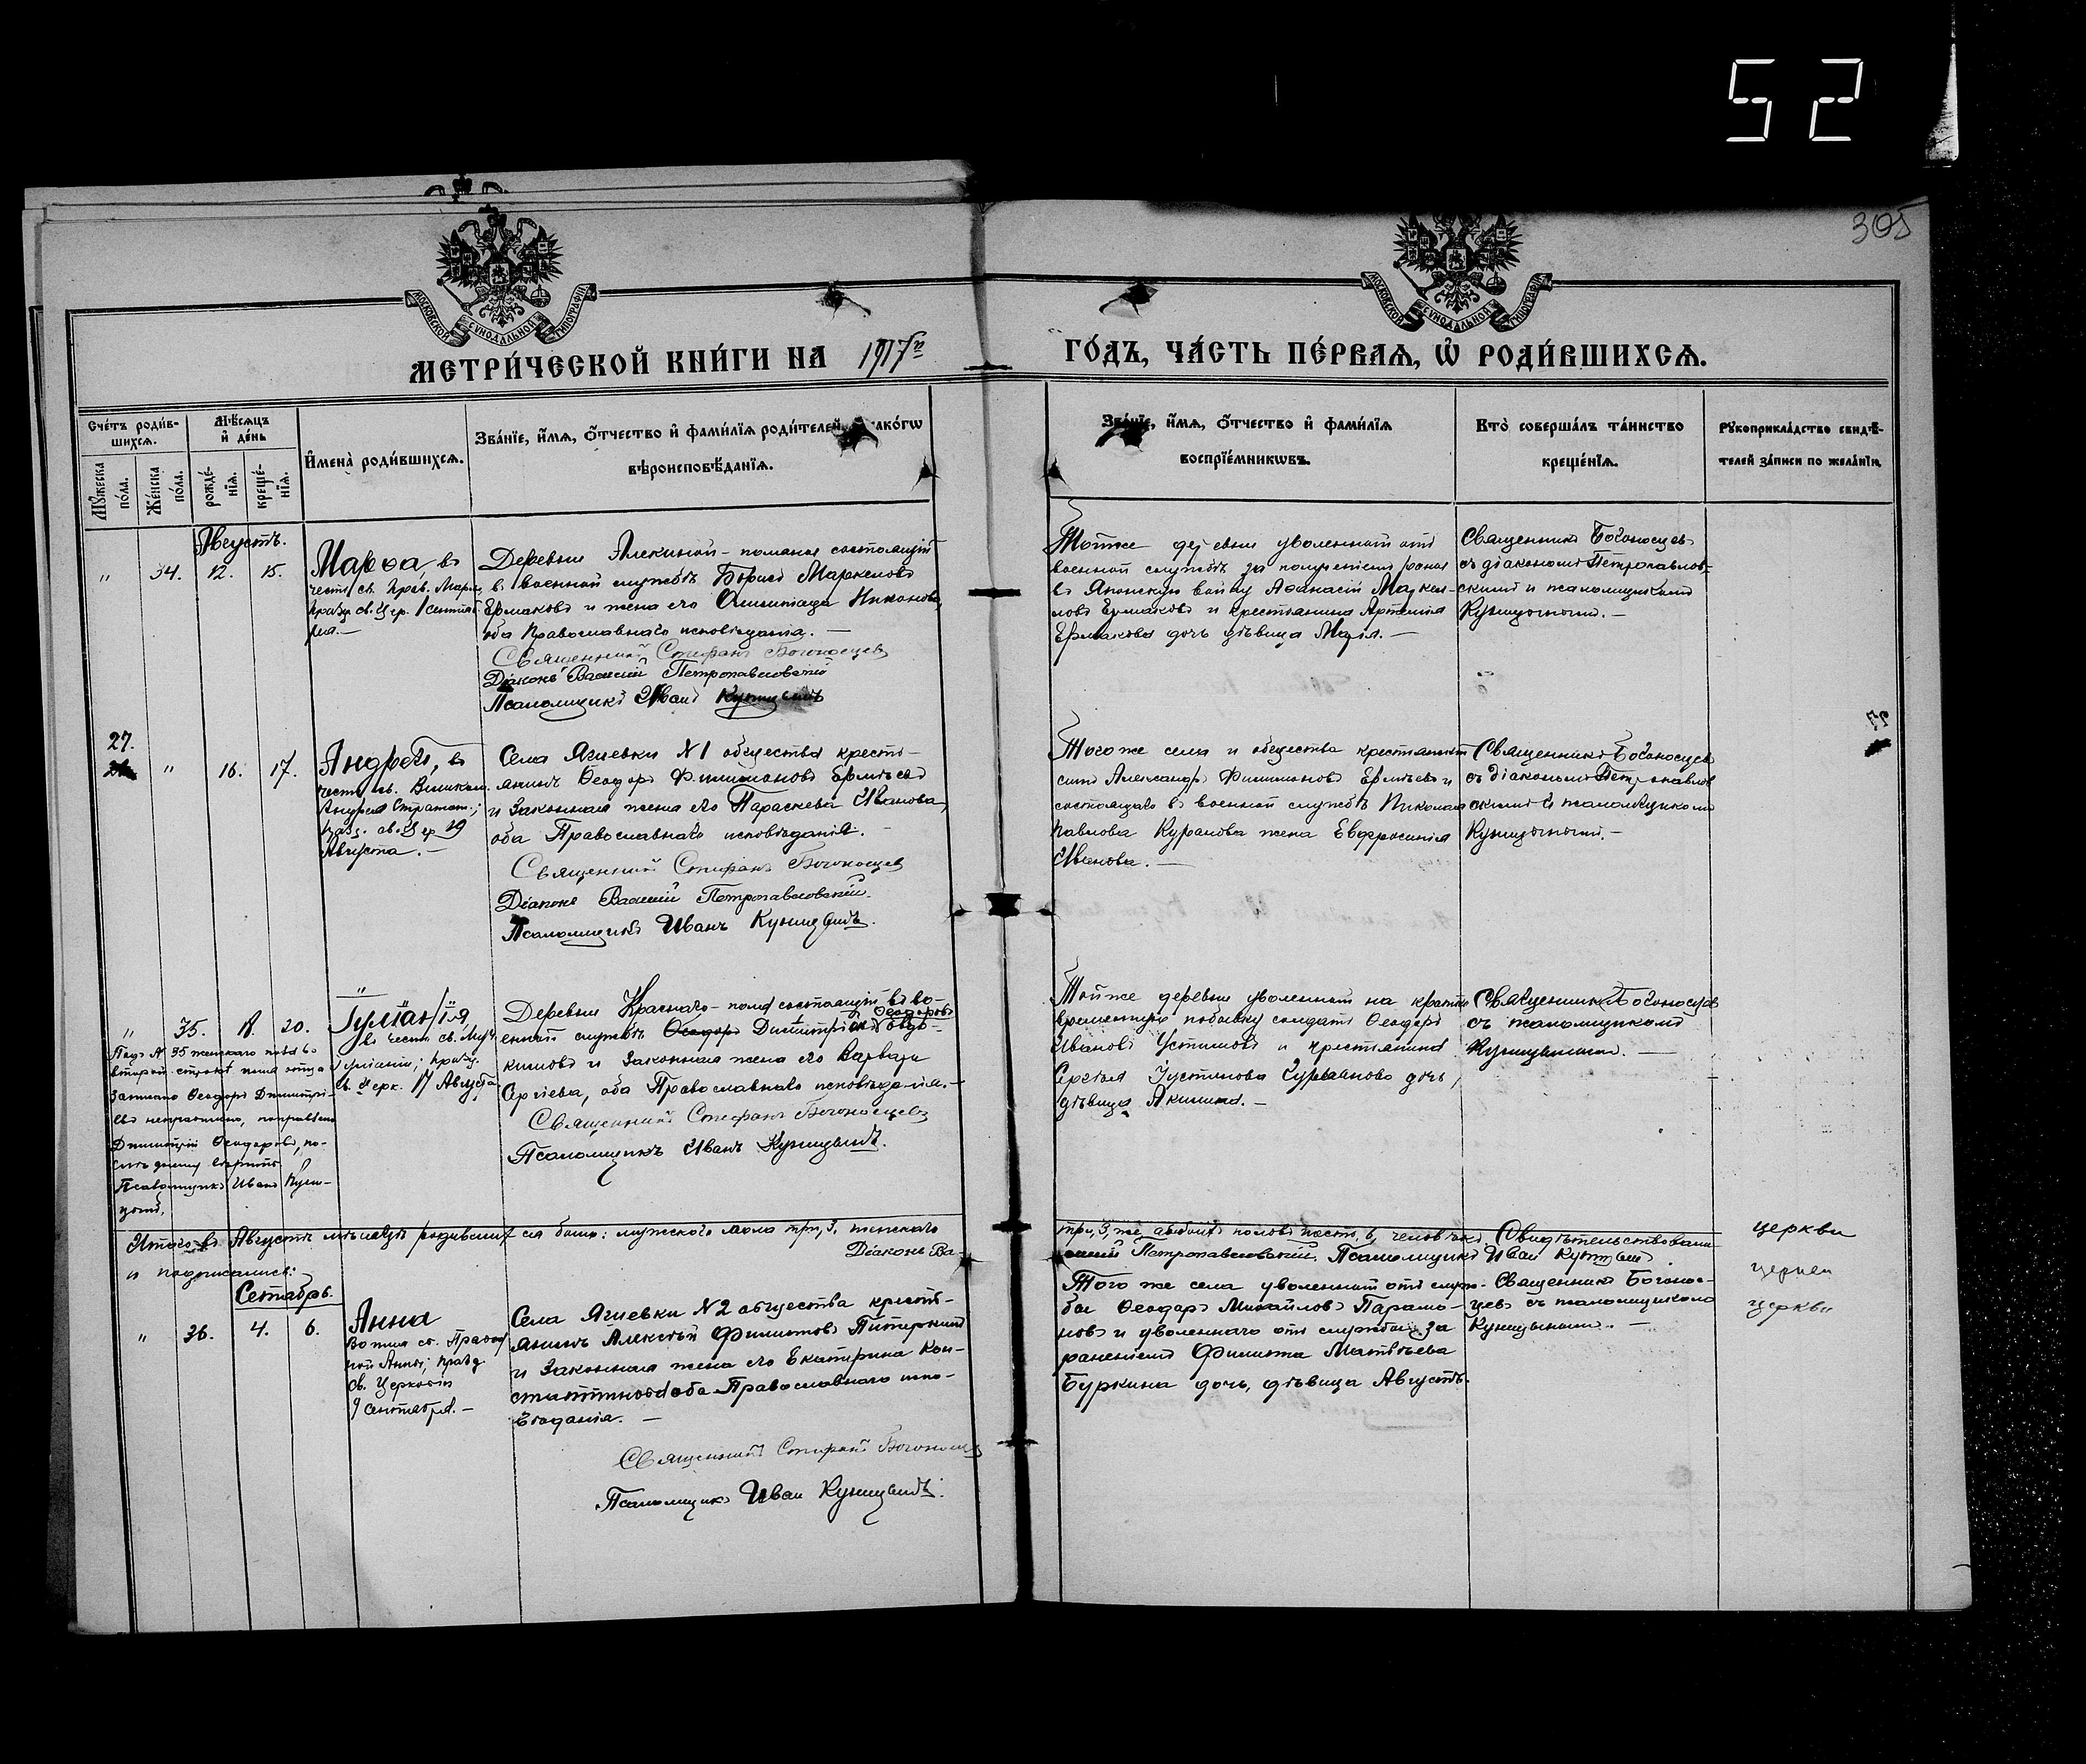 52
305
МОСКОВСКОЙ СѴНОДАЛЬНОЙ ТИПОГРАФІИ
МОСКОВСКОЙ СѴНОДАЛЬНОЙ ТИПОГРАФІИ
МЕТРИ́ЧЕСКОЙ КНИ́ГИ НА 1917й ГО́ДЪ, ЧА́СТЬ ПЕ́РВАѦ, Ѡ҆ РОДИ́ВШИХСѦ.
Сче́тъ роди́в-
шихсѧ.
Мѣ́сѧцъ
и҆ де́нь
Мꙋ́жеска
по́ла.
Же́нска
по́ла.
рожде́-
нїѧ.
креще́-
нїѧ.
И҆мена̀ роди́вшихсѧ.
Зва́нїе, и҆́мѧ, ѻ҆́тчество и҆ фами́лїѧ роди́телей, акогѡ
вѣроисповѣ́данїѧ.
Зва́нїе, и҆́мѧ, ѻ҆́тчество и҆ фами́лїѧ
воспрїе́мникѡвъ.
Кто̀ соверша́лъ та́инство
креще́нїѧ.
Рꙋкоприкла́дство свидѣ́-
телей за́писи по жела́нїю.
Августъ.
" 34. 12. 15.
Марѳа, въ
честь св. преп. Марѳы,
празд. св. Цер. 1 сентяб-
ря.—
Деревни Алекиной - поляны состоящій
въ военной службѣ Борисъ Маркеловъ
Ермаковъ и жена его Олимпіада Никонова,
оба Православнаго исповѣданія. —
Священникъ Стефанъ Богоносцевъ
Діаконъ Василій Петропавловскій
Псаломщикъ Иванъ Куницынъ
Тойже деревни уволенный отъ
военной службы за полученіемъ раны
въ Японскую войну Аѳанасій Маркел-
ловъ Ермаковъ и крестьянина Артемія
Ермакова дочь дѣвица Марія. —
Священникъ Богоносцевъ
съ діакономъ Петропавлов-
скимъ и псаломщикомъ
Куницынымъ. —
27.
" 16. 17.
Андрей, въ
честь св. Великом.
Андрея Стратил.;
празд. св. Цер 19
Августа. —
Села Ягиевки N 1 общества кресть-
янинъ Ѳеодоръ Филимоновъ Ермѣевъ
и законная жена его Параскева Иванова,
оба Православнаго исповѣданія. —
Священникъ Стефанъ Богоносцев
Діаконъ Василій Петропавловскій.
Псаломщикъ Иванъ Куницынъ.
Тогоже села и общества крестьянскій
сынъ Александръ Филимоновъ Ермѣевъ и
состоящаго въ военной службѣ Николая
Павлова Куракова жена Евфросинія
Иванова. —
Священникъ Богоносцев
съ діакономъ Петропавлов
скимъ и псаломщикомъ
Куницынымъ. —
" 35. 18. 20.
Іуліанія
въ честь св. Муч.
Іуліаніи; празд.
св. Церк. 17 Августа
Деревни Краснаго - поля состоящій въ во-
енной службѣ Ѳеодоръ Димитрій Ѳеодоровъ Овдо-
кимовъ и законная жена его Варвара
Сергіева, оба Православнаго исповѣданія. —
Священникъ Стефанъ Богоносцевъ
Псаломщикъ Иванъ Куницынъ.
Тойже деревни уволенный на кратко
временную побывку солдатъ Ѳеодоръ
Ивановъ Устиновъ и крестьянина
Сергѣя Іустинова дочь,
дѣвица Акилина. —
Священникъ Богоносцев
съ псаломщикомъ
Куницынымъ. —
Подъ N 35 женскаго пола во
второй строкѣ имя отца
записано Ѳеодоръ Димитрі-
евъ неправильно, поправлено
Димитрій Ѳеодоровъ, по-
сему вѣрить
Псаломщикъ Иванъ Куни-
цынъ.
Итого въ Августѣ мѣсяцѣ родившихся было: мужского пола три, 3, женскаго три, 3, же, обоихъ половъ шесть, 6, человѣкъ. Свидѣтельствовали церкви
и подписались: Діаконъ Ва- силій Петропавловскій. Псаломщикъ Иван Куницынъ церкви
церкви
Сентябрь.
" 36. 4. 6.
Анна
Во имя св. Правед
ной Анны; празд
св. Церковію
9 сентября. —
Села Ягиевки N 2 общества кресть-
янинъ Алексѣй Филиповъ Питерский
и законная жена его Екатерина Кон-
стантинова оба Православнаго испо-
вѣданія. —
Священникъ Стефанъ Богоносцевъ
Псаломщикъ Иван Куницынъ.
Того же села уволенный отъ служ-
бы Ѳеодоръ Михайловъ Парамо-
новъ и уволеннаго отъ службы за
раненіемъ Филипа Матвѣева
Буркина дочь, дѣвица Августа.
Священникъ Богонос-
цевъ съ псаломщикомъ
Куницынымъ. —